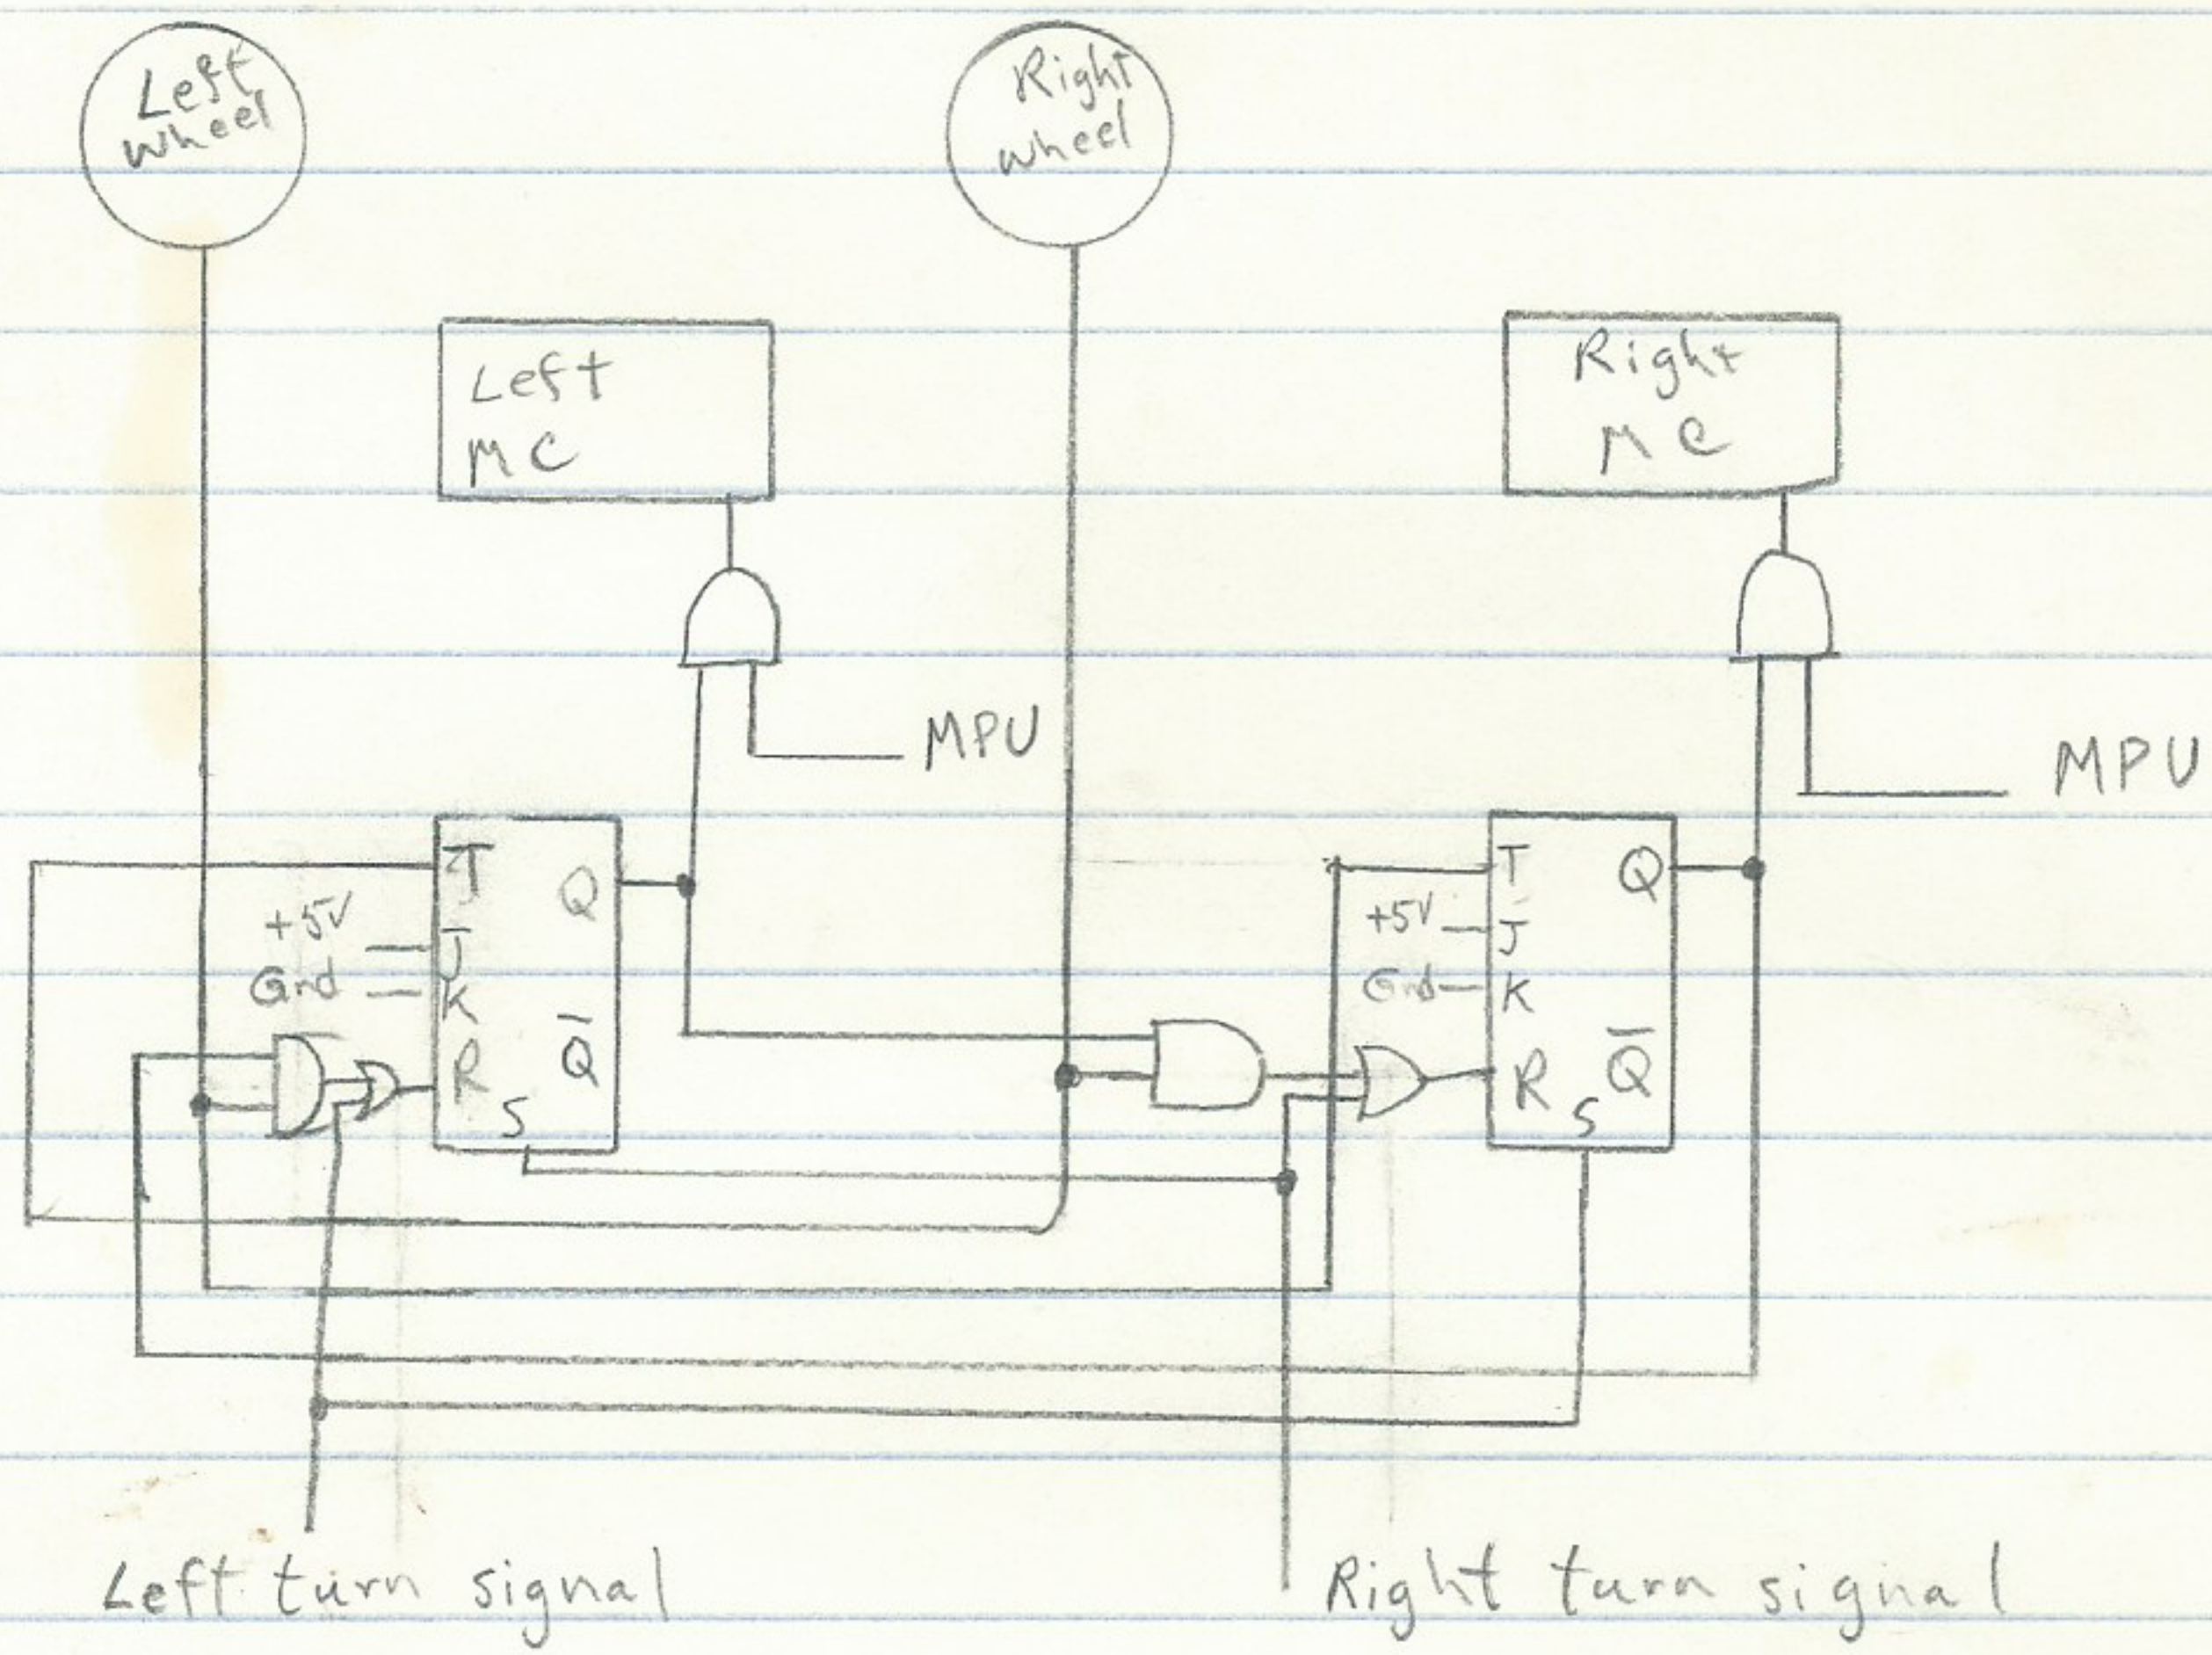 Left
wheel
Right
wheel
Left
MC
Right
MC
MPU
MPU
T
Q
+5V
J
Gnd
K
R
Q̅
S
T
Q
+5V
J
Gnd
K
R
Q̅
S
Left turn signal
Right turn signal